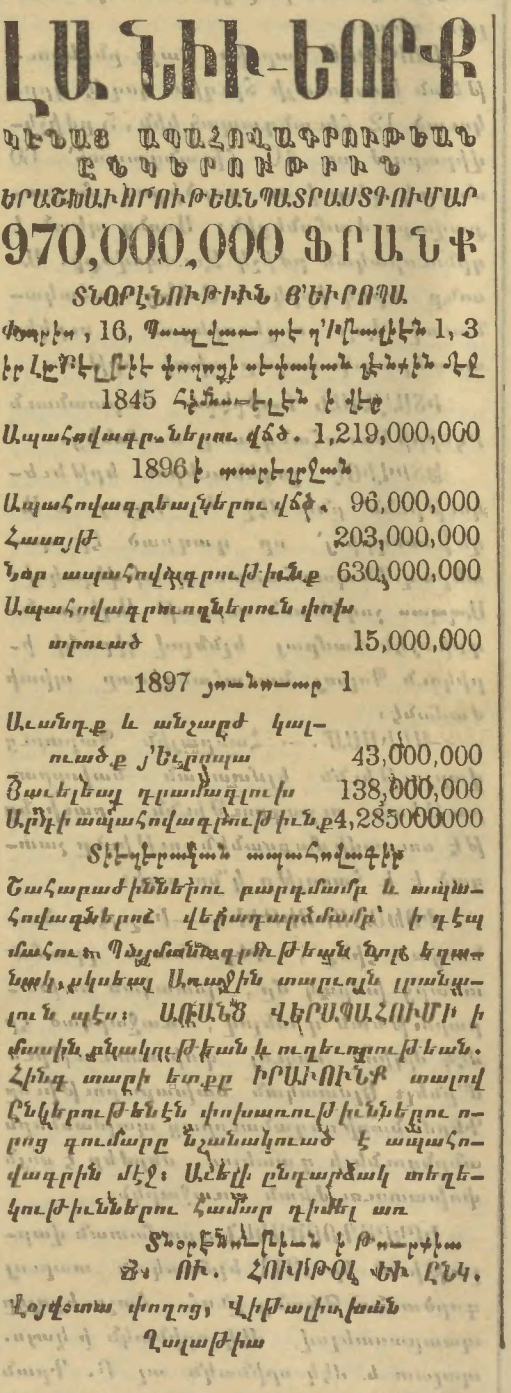 ԼԱ ՆԻՒ-ԵՈՐՔ
ԿԵՆԱՑ ԱՊԱՀՈՎԱԳՐՈՒԹԵԱՆ
ԸՆԿԵՐՈՒԹԻՒՆ
ԵՐԱՇԽԱՒՈՐՈՒԹԵԱՆ ՊԱՏՐԱՍՏ ԳՈՒՄԱՐ
970,000,000 ՖՐԱՆՔ
ՏՆՕՐԷՆՈՒԹԻՒՆ Յ՚ԵՒՐՈՊԱ
Փարիզ, 16, 1, 3
իր փողոցի սեփական շէնքին մէջ
1845 հիմնուելէն ի վեր
Ապահովագրուեներու վճձ. 1,219,000,000
1896 ի տարեշրջան
Ապահովագրեալներու վճձ. 96,000,000
Հասոյթ 203,000,000
Նոր ապահովագրութիւնք 630,000,000
Ապահովագրուողներուն փոխ
տրուած 15,000,000
1897 յունուար 1
Աւանդք և անշարժ կալ-
ուածք յ՚Եւրոպա 43,000,000
Յաւելեալ դրամագլուխ 138,000,000
Արդի ապահովագրութիւնք 4,285000000
Տիեզերական ապահովագիր
Շահաբաժիններու բարդմամբ և ապա-
հովագներու վերադարձմամբ՝ ի դէպ
մահու. Պայմանագրութեան նոյն եղա-
նակ, սկսեալ Առաջին տարւոյն լրանա-
լուն պէս։ ԱՌԱՆՑ ՎԵՐԱՊԱՀՈՒՄԻ ի
մասին բնակութեան և ուղեւորութեան.
Հինգ տարի ետքը ԻՐԱՒՈՒՆՔ տալով
Ընկերութենէն փոխառութիւններու ո-
րոց գումարը նշանակուած է ապահո-
վագրին մէջ։ Աւելի ընդարձակ տեղե-
կութիւններու համար դիմել առ
Տնօրէնութիւն ի Թուրքիա
ՈՒ. ՀՈՒՖԹՕԼ ԵՒ ԸՆԿ.
Վօյվօտա փողոց, Վիթալիս խան
Ղալաթիա